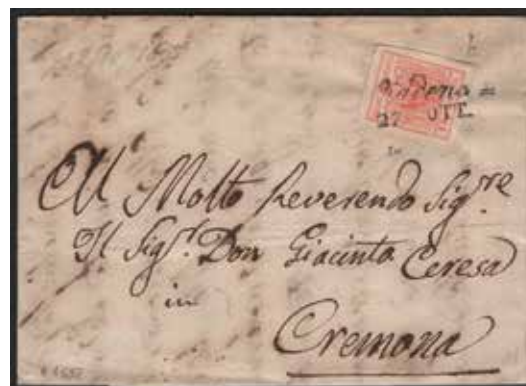 27 OTT.
Al Molto Reverendo Sig.re
Il Sig.r Don Giacinto Ceresa
in
Cremona